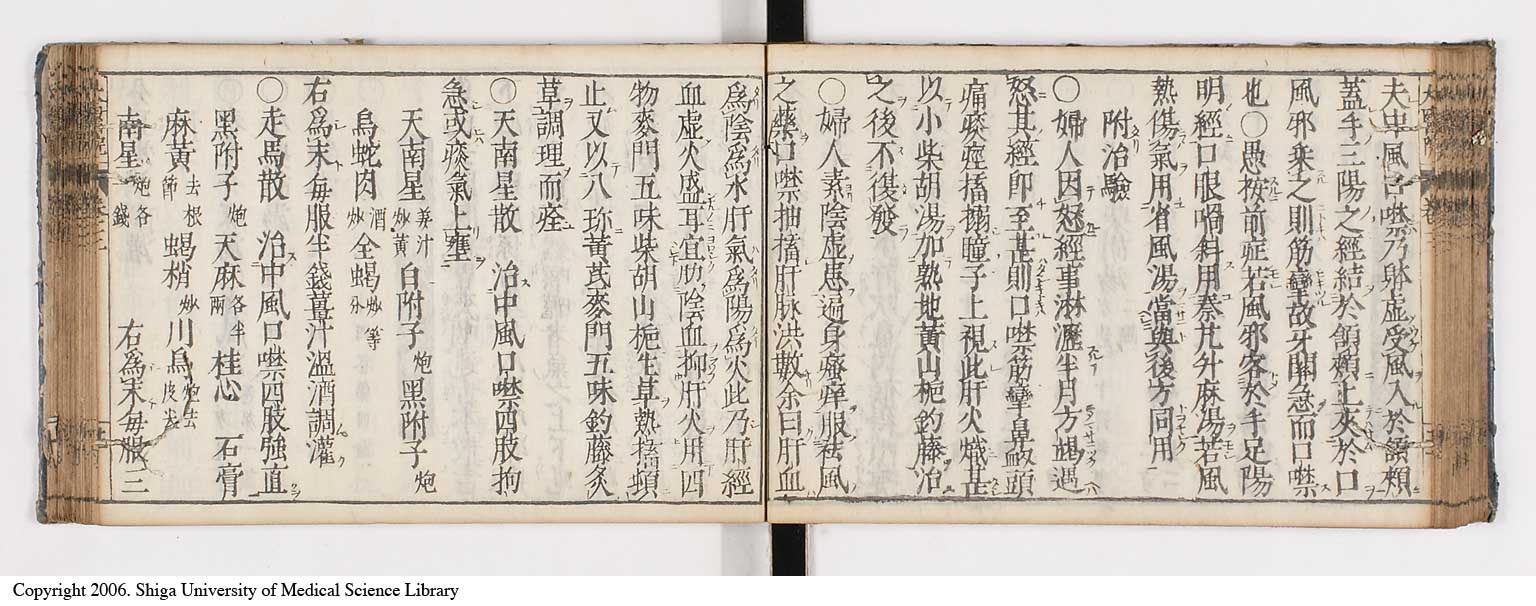 夫中風口噤乃躰虚受風入於頷頰
蓋手三陽之經結於頷頰上夾於口
風邪乗之則筋攣故牙關急而口噤
也〇愚按前症若風邪客於手足陽
明經口眼喎斜用秦艽升麻湯若風
熱傷氣用省風湯當與後方同用
附治驗
〇婦人因怒經事淋瀝半月方竭遇
怒其經即至甚則口噤筋攣鼻衂頭
痛痰痙搐搦瞳子上視此肝火熾甚
以小柴胡湯加熟地黄山梔釣藤治
之後不復發
〇婦人素陰虚患遍身瘙痒服祛風
之藥口噤抽搐肝脉洪數余曰肝血
爲陰爲水肝氣爲陽爲火此乃肝經
血虚火盛耳宜助陰血抑肝火用四
物麥門五味柴胡山梔生草熱搐頓
止又以八珎黄芪麥門五味釣藤灸
草調理而痊
〇天南星散 治中風口噤四肢拘
急或痰氣上壅
天南星姜汁炒黄 白附子炮 黒附子炮
烏蛇肉酒炒 全蝎炒等分
右爲末毎服半錢薑汁温酒調灌
〇走馬散 治中風口噤四肢強直
黒附子炮 天麻各半兩 桂心 石膏
麻黄去根節 蝎梢炒 川烏炮去皮尖
南星炮各一錢 右爲末毎服三
Copyright 2006. Shiga University of Medical Science Library